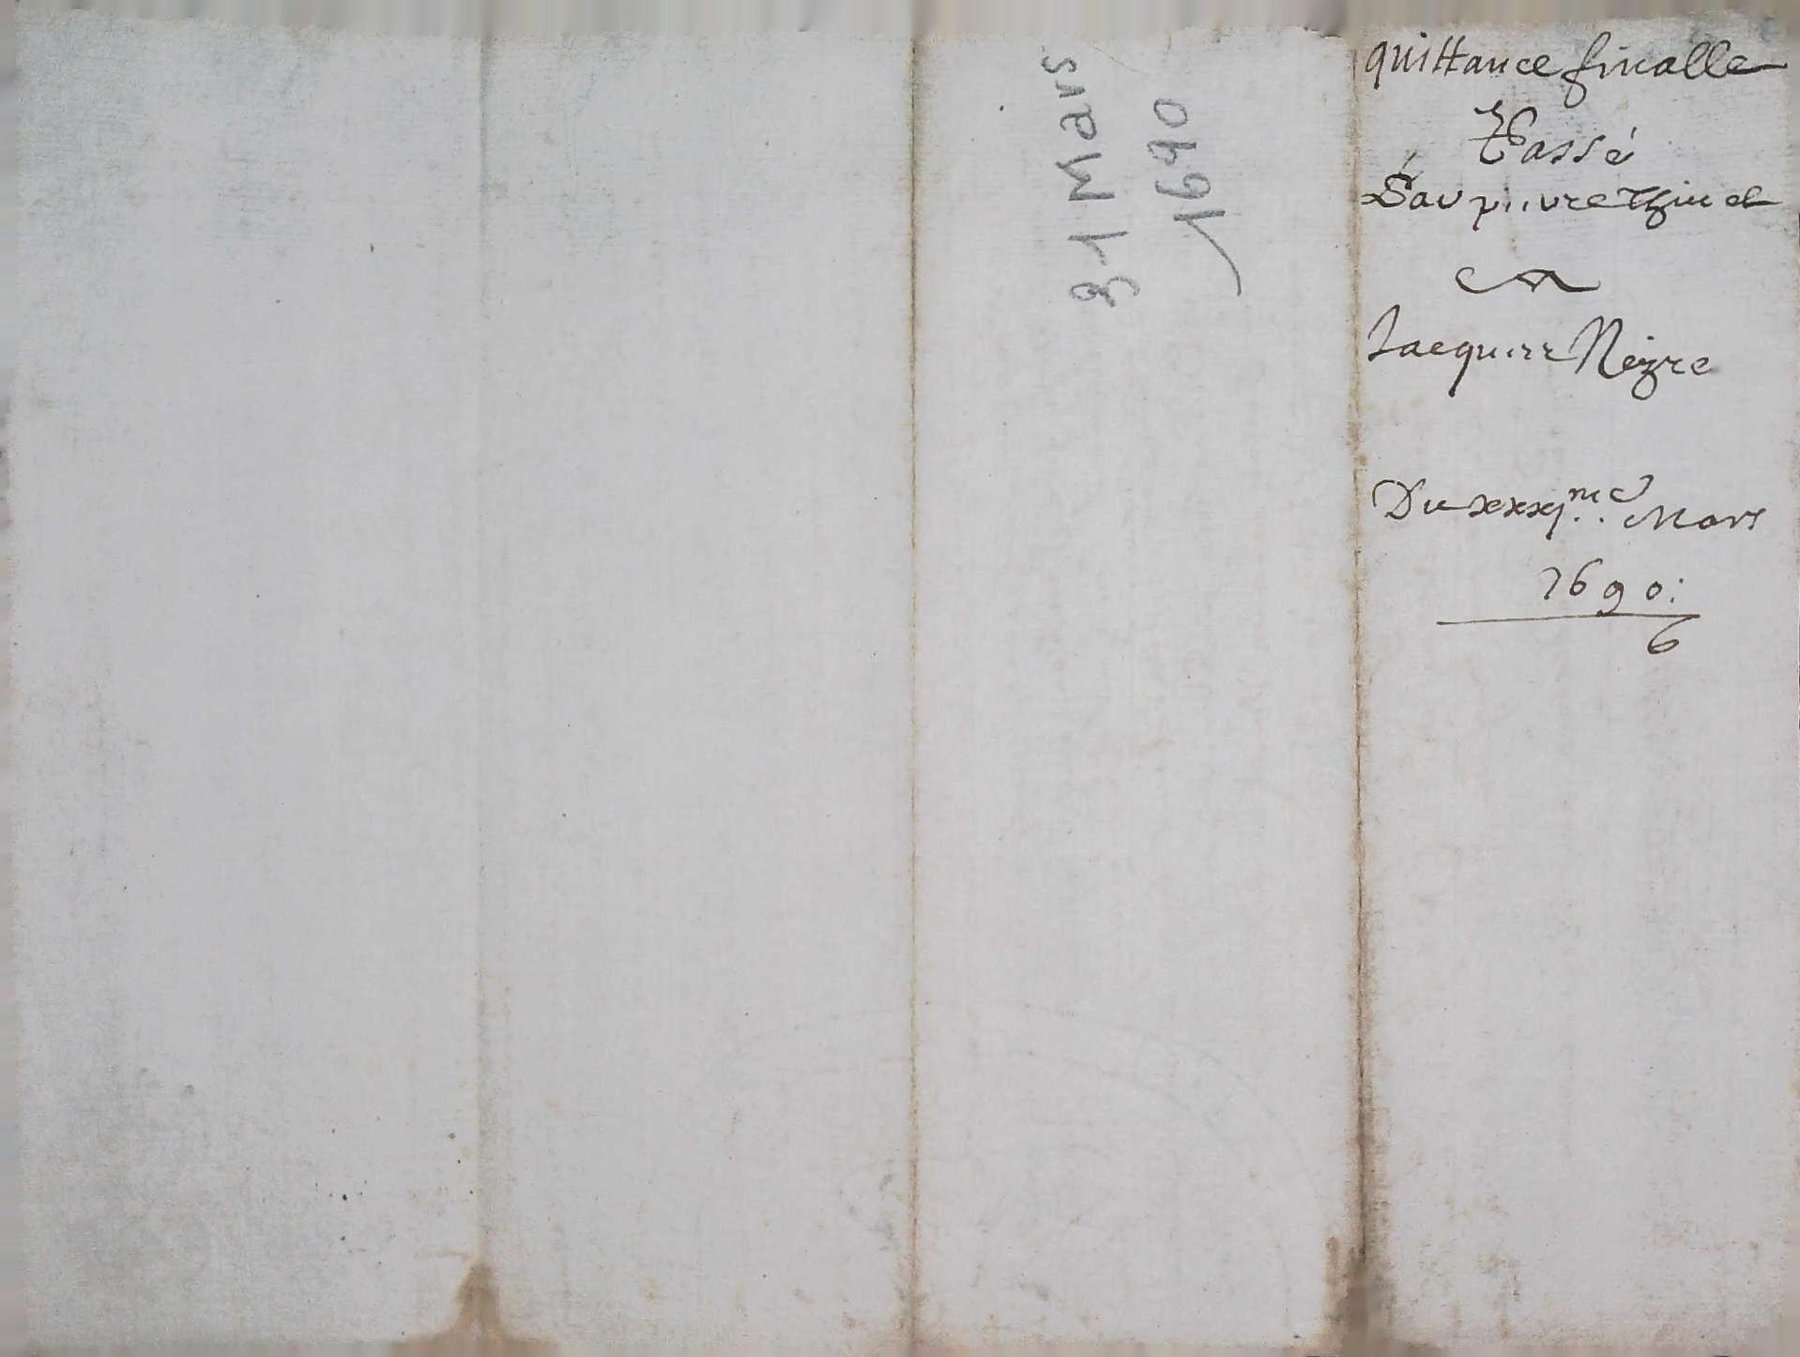 31 Mars
1690
quittance finalle
Passé
Par pierre Thinel
Jacques Negre
Du xxxj.me Mars
1690:
6